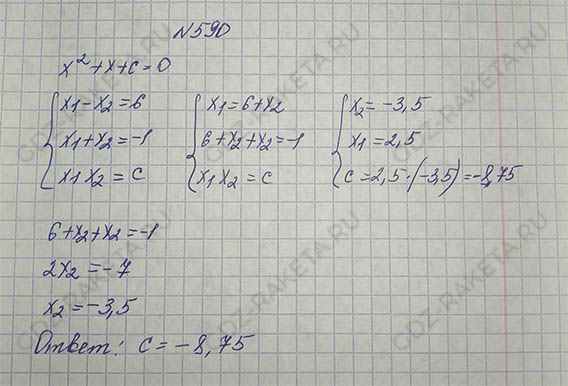 №590
x² + x + c = 0
x₁ - x₂ = 6
x₁ + x₂ = -1
x₁ x₂ = c
x₁ = 6 + x₂
6 + x₂ + x₂ = -1
x₁ x₂ = c
x₂ = -3,5
x₁ = 2,5
c = 2,5 · (-3,5) = -8,75
6 + x₂ + x₂ = -1
2x₂ = -7
x₂ = -3,5
Ответ: c = -8,75
GDZ-RAKETA.RU
GDZ-RAKETA.RU
GDZ-RAKETA.RU
GDZ-RAKETA.RU